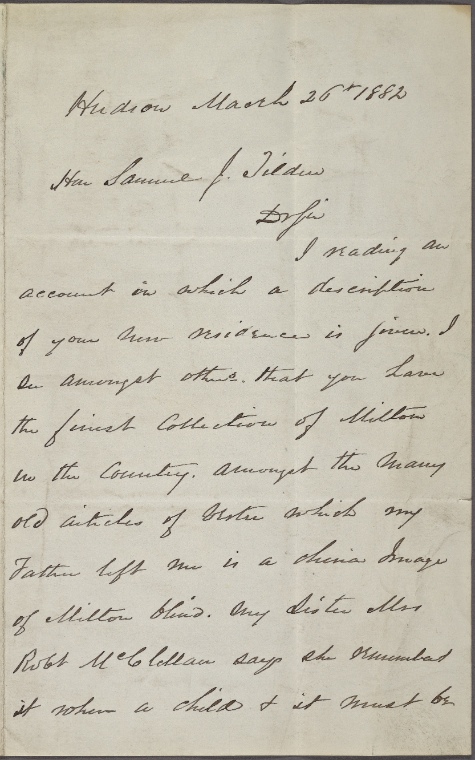 Hudson March 26t 1882
Hon Samuel J. Tilden
Dr Sir
I reading an
account in which a description
of your new residence is given. I
see amongst others. that you have
the finest Collection of Milton
in the Country. amongst the many
old articles of which my
Father left me is a china Image
of Milton blind. My Sister Mrs
Robt McClellan says she remembers
it when a child & it must be